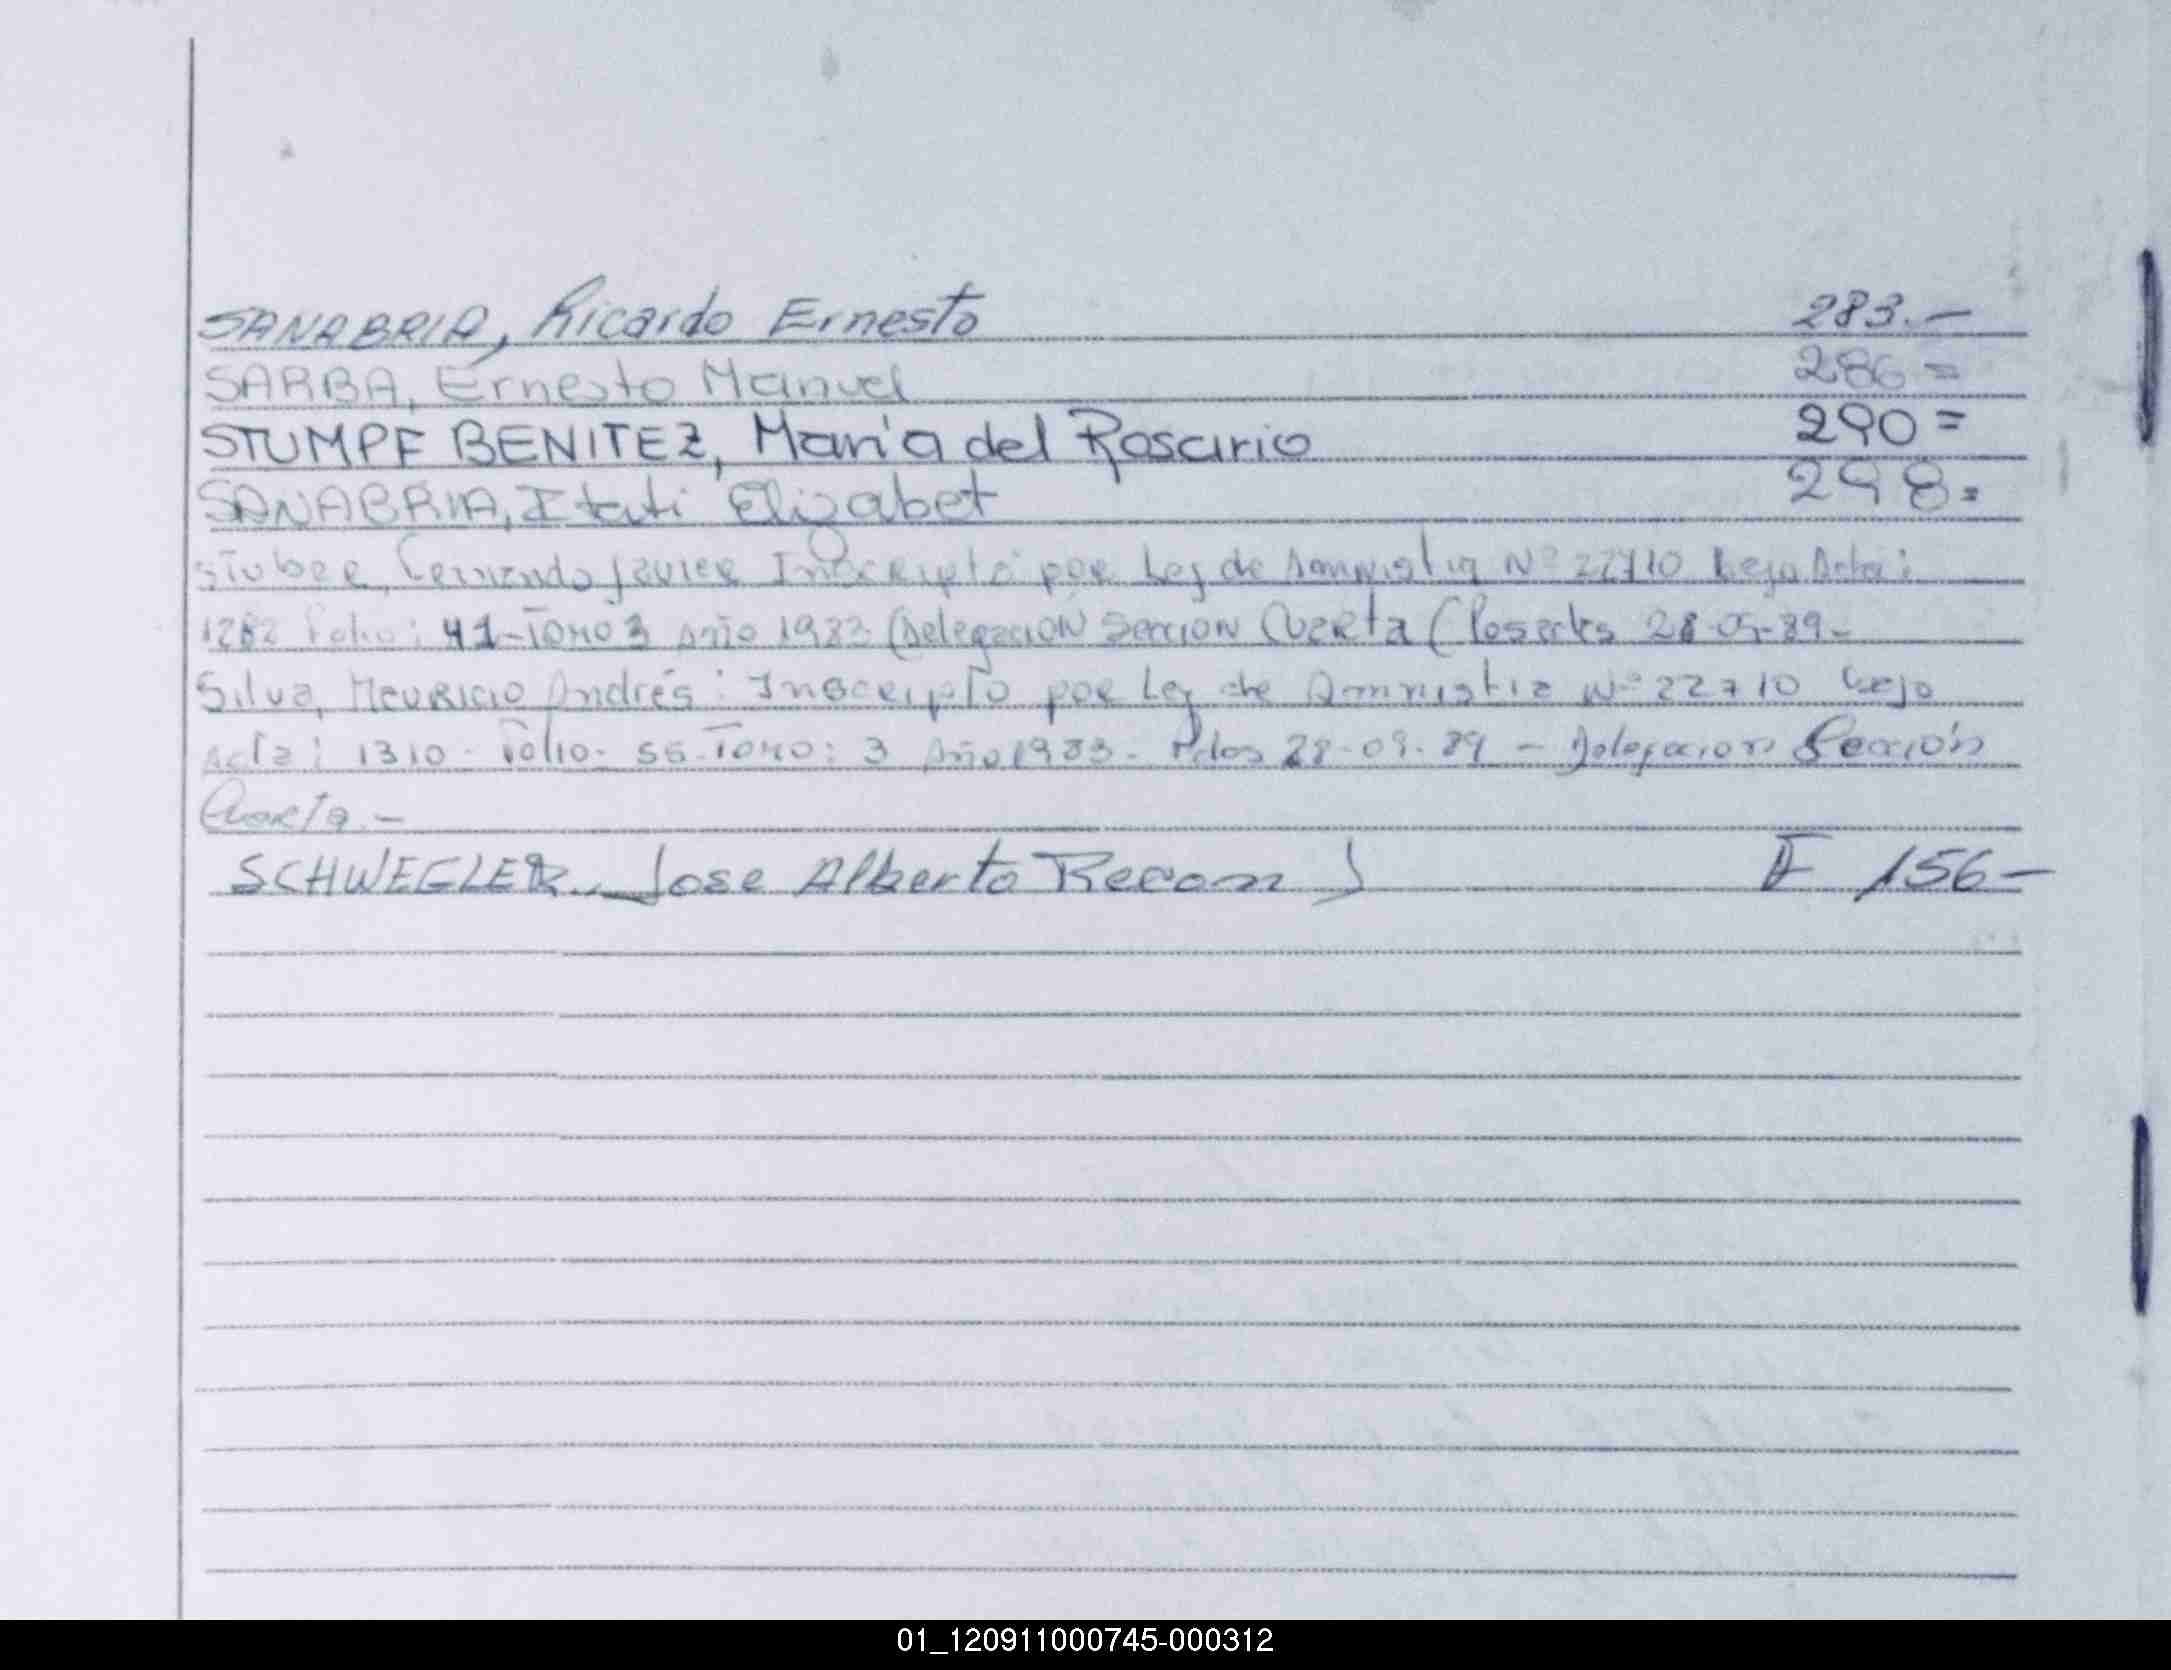 SANABRIA, Ricardo Ernesto 283.-
SARBA, Ernesto Manuel 286=
STUMPF BENITEZ, María del Rosario 290=
SANABRIA, Itati Elizabet 298=
Stuber, Fernando Javier Inscripto por Ley de Amnistia Nº 22710 bajo Acta:
1282 Folio: 41-Tomo 3 Año 1983 (Delegacion Seccion Cuarta (Posadas 28-09-89-
Silva, Mauricio Andrés: Inscripto por Ley de Amnistia Nº 22710 bajo
Acta: 1310- Folio- 55-Tomo: 3 Año 1983- Pdas 28-09-89 - Delegacion Sección
Cuarta.-
SCHWEGLER, Jose Alberto Recon) F 156-
01_120911000745-000312